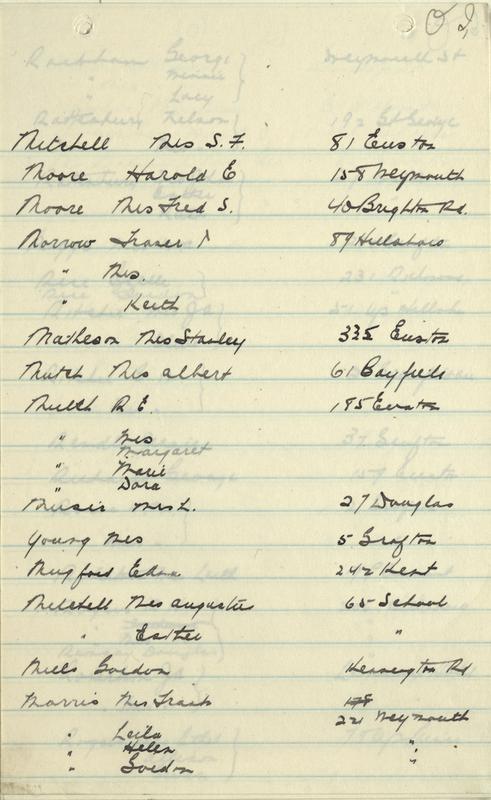 Mitchell Mrs S. F. 81 Euston
Moore Harold E 158 Weymouth
Moore Mrs Fred S. 40 Brighton Rd.
Morrow Fraser 89 Hillsboro
" Mrs.
" Keith
Matheson Mrs Stanley 335 Euston
Mutch Mrs albert 61 Bayfield
Mutch R E 195 Euston
" Mrs
Margaret
" Marie
" Dora
Mrs L. 27 Douglas
Young Mrs 5 Grafton
Mugford Edna 242 Kent
Mitchell Mrs augustus 65 School
" Esther "
Mills Gordon Kensington Rd
Morris Mrs 178
221 Weymouth
" Leila "
" Helen "
" Gordon